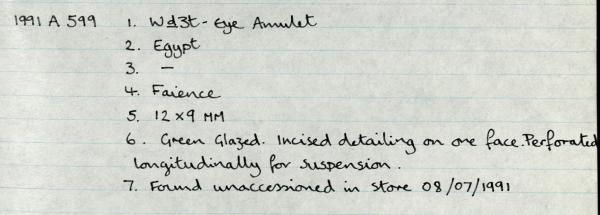 1991 A 599 1. Wd3t - Eye Amulet
2. Egypt
3. —
4. Faience
5. 12 x 9 MM
6. Green Glazed. Incised detailing on one face. Perforated
longitudinally for suspension.
7. Found unaccessioned in store 08/07/1991